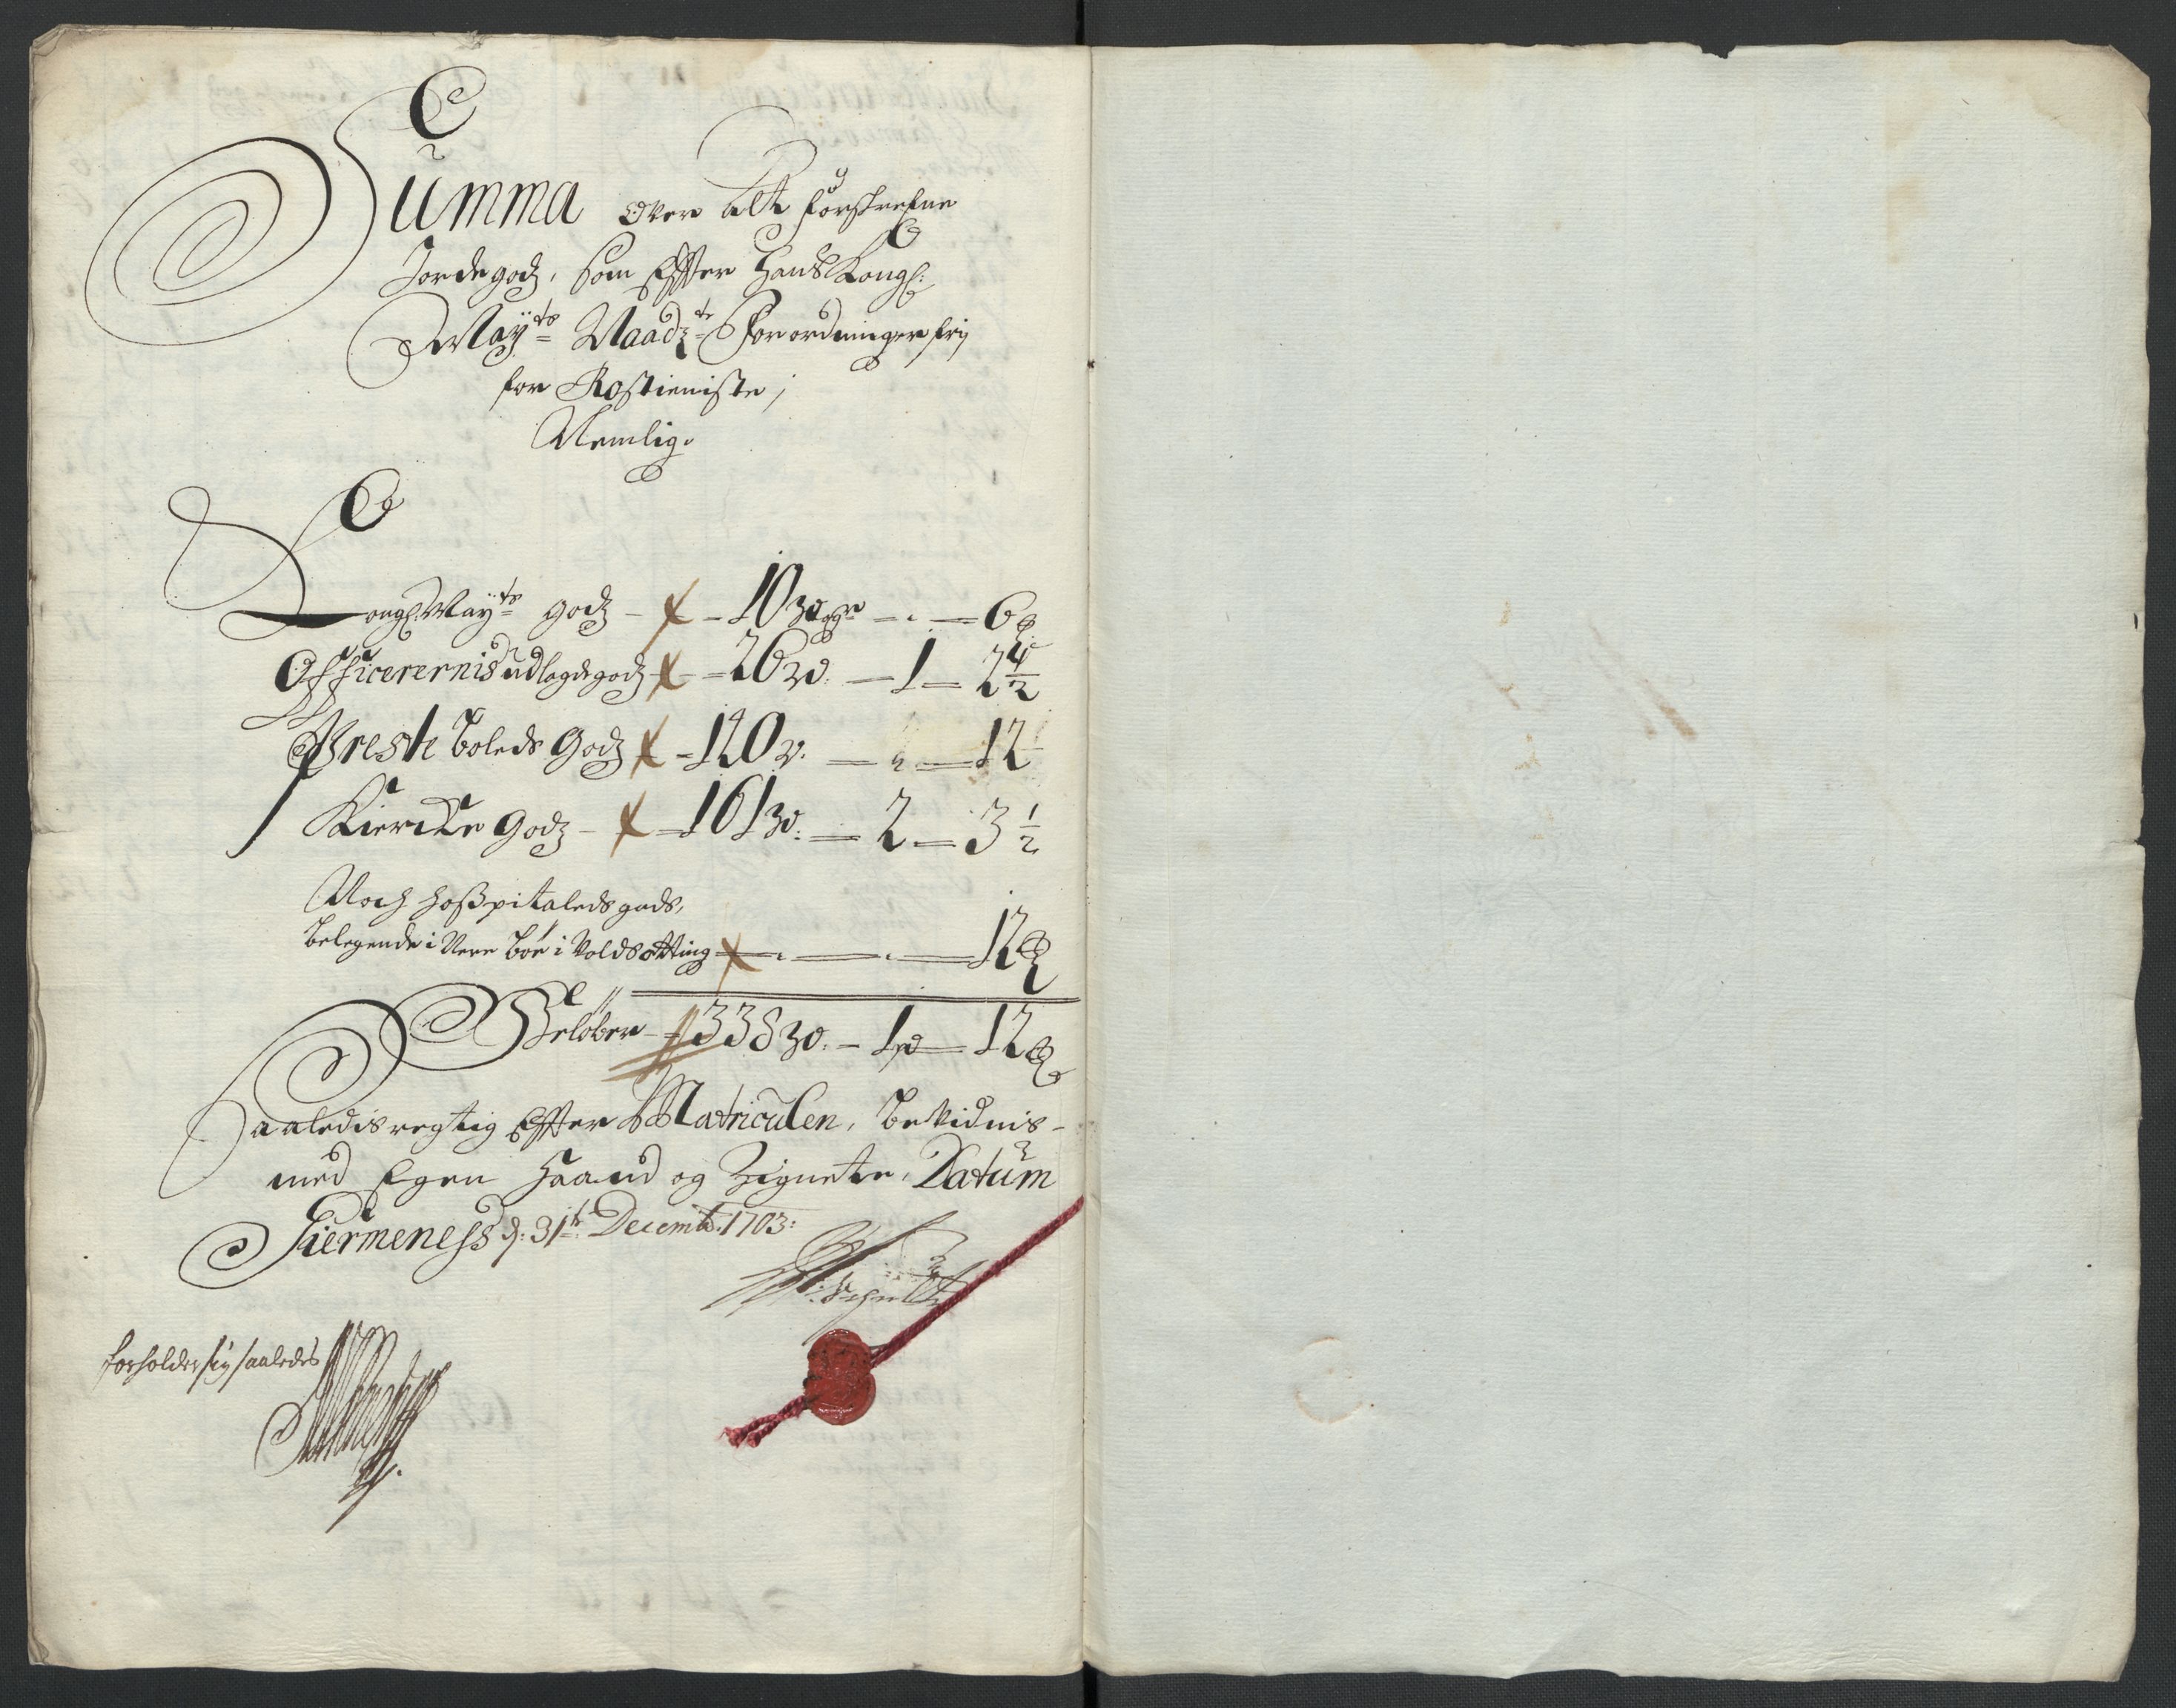 Summa over Alt forskrefne
Jordegodz, som Efter Hans Kongl:
Mayts Naadste Forordninger fri
for Rostieniste,
Nemlig.
Kongl: Mayts godz - 10
Officerernis udlagde godz - 26 - 1 - 2 1/2
Preste boleds Godz - 140 - 12
Kiercke Godz - 161 - 2 - 3 1/2
Noch Hosspitaleds gods,
belegende i Nere boe i Volds otting - 12
Beløber - 338 - 1 - 12
Saaledis regtig Efter Matriculen, bevidnis
med Egen Haand og Zignete, Datum
Giermeness d: 31te Decemb: 1703:
forholder sig saaledes